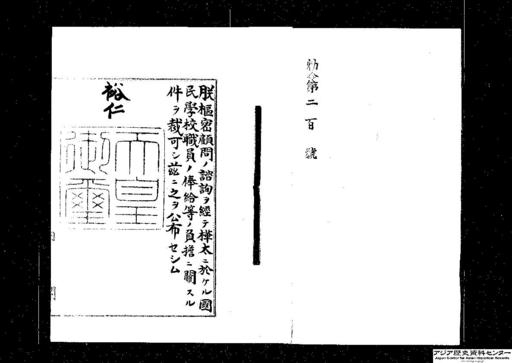 勅令第二百號
朕樞密顧問ノ諮詢ヲ經テ樺太ニ於ケル國
民學校職員ノ俸給等ノ負擔ニ關スル
件ヲ裁可シ茲ニ之ヲ公布セシム
裕仁
天皇
御璽
アジア歴史資料センター
Japan Center for Asian Historical Records